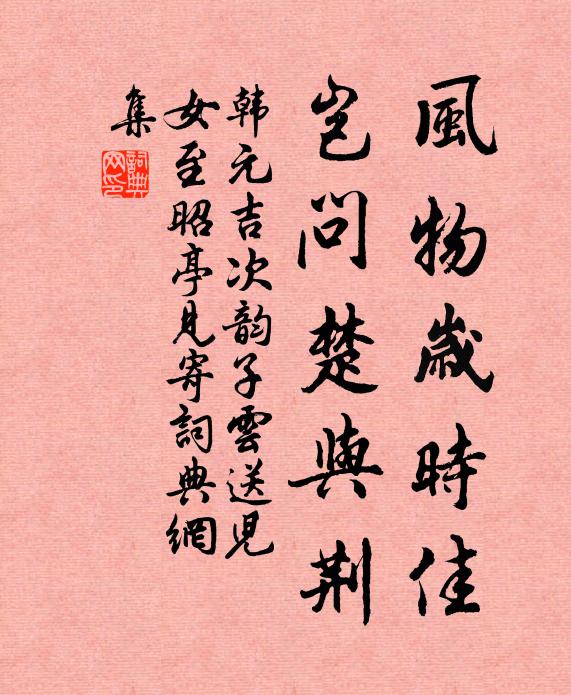 風物歲時佳
豈問楚與荆
韩元吉次韵子雲送児
女至昭亭見寄詞典網
集
詞典
网印